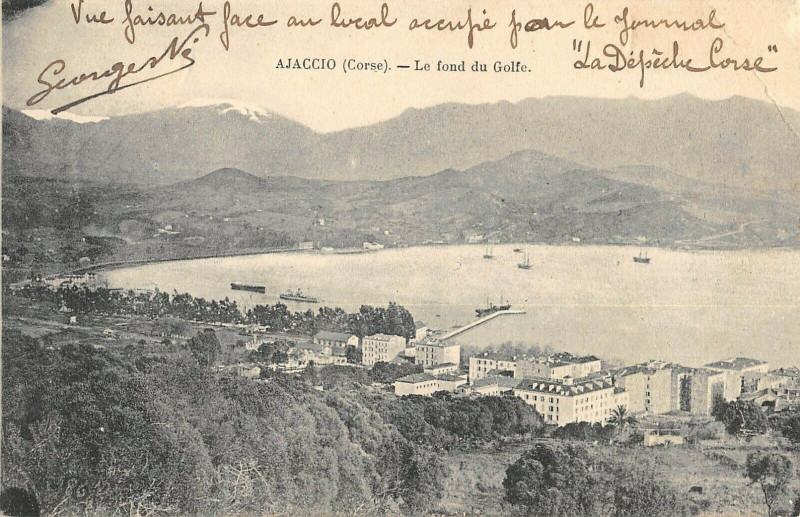 Vue faisant face au local occupé par le Journal
"La Dépêche Corse"
AJACCIO (Corse). — Le fond du Golfe.